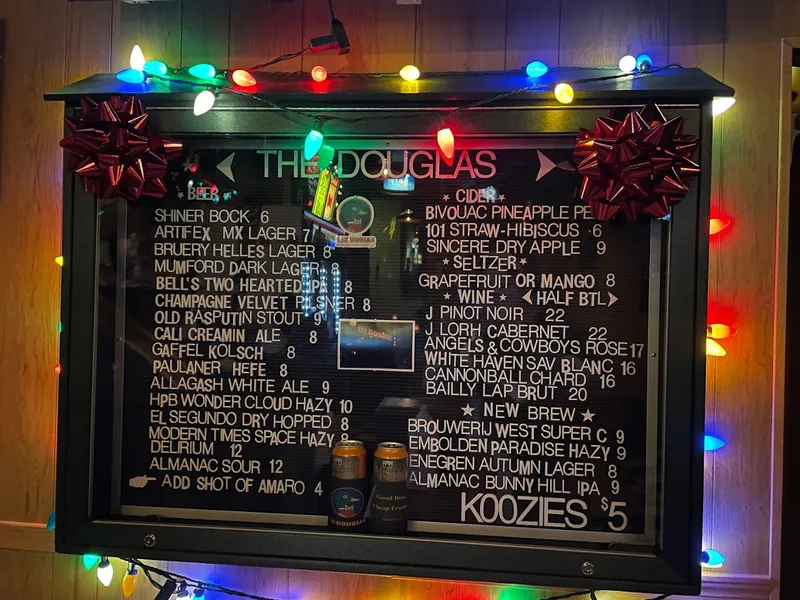 THE DOUGLAS
BEER
SHINER BOCK 6
ARTIFEX MX LAGER 7
BRUERY HELLES LAGER 8
MUMFORD DARK LAGER 8
BELL'S TWO HEARTED IPA 8
CHAMPAGNE VELVET PILSNER 8
OLD RASPUTIN STOUT 9
CALI CREAMIN ALE 8
GAFFEL KOLSCH 8
PAULANER HEFE 8
ALLAGASH WHITE ALE 9
HPB WONDER CLOUD HAZY 10
EL SEGUNDO DRY HOPPED 8
MODERN TIMES SPACE HAZY 8
DELIRIUM 12
ALMANAC SOUR 12
ADD SHOT OF AMARO 4
CIDER
BIVOUAC PINEAPPLE
101 STRAW-HIBISCUS -6
SINCERE DRY APPLE 9
SELTZER
GRAPEFRUIT OR MANGO 8
WINE HALF BTL
J PINOT NOIR 22
J LORH CABERNET 22
ANGELS & COWBOYS ROSE 17
WHITE HAVEN SAV BLANC 16
CANNONBALL CHARD 16
BAILLY LAP BRUT 20
NEW BREW
BROUWERIJ WEST SUPER C 9
EMBOLDEN PARADISE HAZY 9
ENEGREN AUTUMN LAGER 8
ALMANAC BUNNY HILL IPA 9
KOOZIES $5
DOUGLAS
Good Beer
Cheap Friends